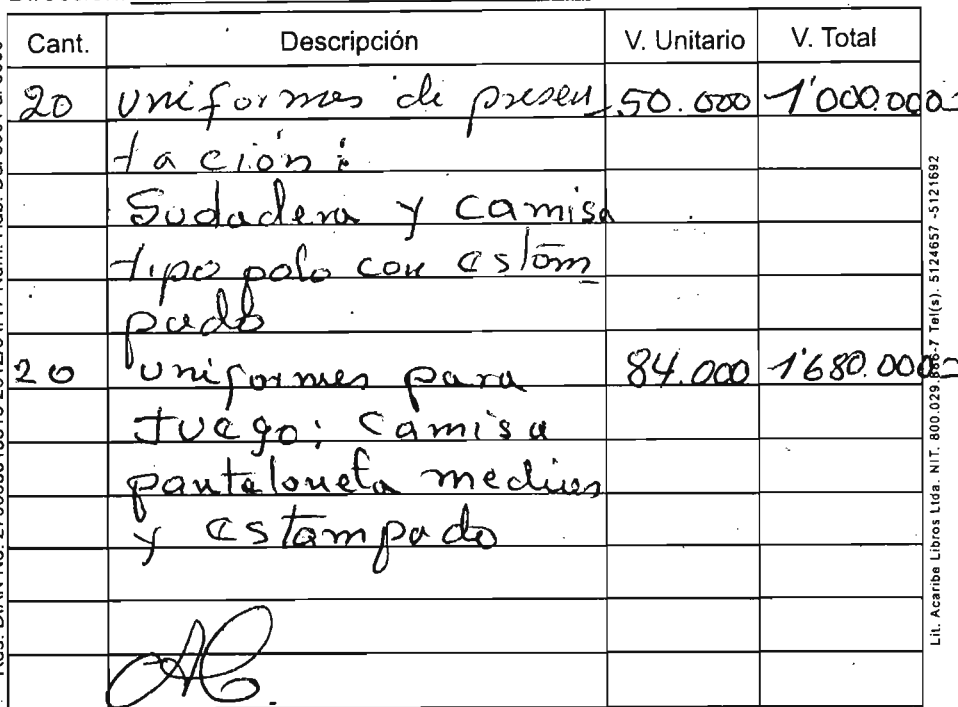 Cant. Descripción V. Unitario V. Total
20 uniformes de presen 50.000 1'000.000=
tación:
Sudadera y camisa
tipo polo con estam
pado
20 uniformes para 84.000 1'680.000=
Juego: Camisa
pantaloneta medias
y estampado
Lit. Acaribe Libros Ltda. NIT. 800.029. -7 Tel(s). 5124657 -5121692